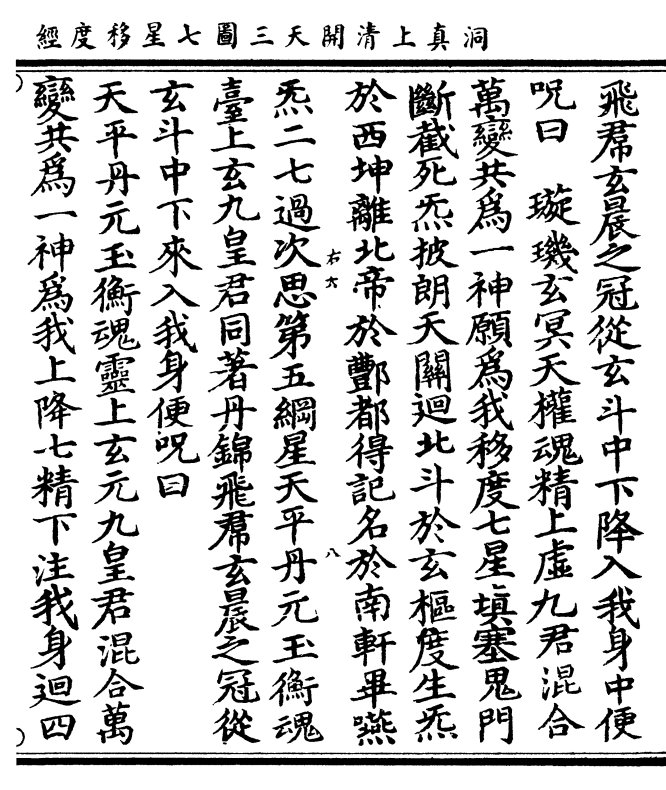 洞真上清開天三圖七星移度經
飛帬玄晨之冠從玄斗中下降入我身中便
呪曰　璇璣玄冥天權魂精上虛九君混合
萬變共爲一神願爲我移度七星填塞鬼門
斷截死炁披朗天關迴北斗於玄樞度生炁
於西坤離北帝於酆都得記名於南軒畢嚥
右六　八
炁二七過次思第五綱星天平丹元玉衡魂
臺上玄九皇君同著丹錦飛帬玄晨之冠從
玄斗中下來入我身便呪曰
天平丹元玉衡魂靈上玄元九皇君混合萬
變共爲一神爲我上降七精下注我身迴四